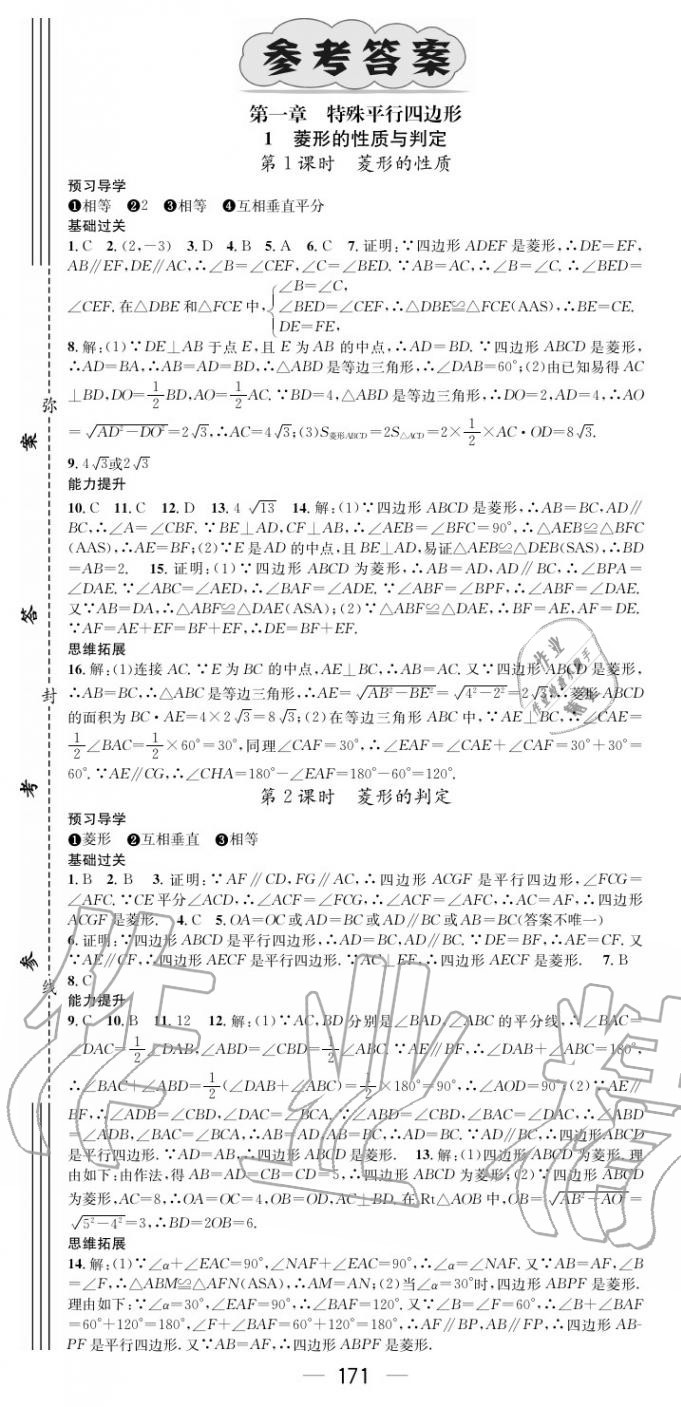 参考答案
第一章 特殊平行四边形
1 菱形的性质与判定
第1课时 菱形的性质
预习导学
❶相等 ❷2 ❸相等 ❹互相垂直平分
基础过关
1. C 2. (2,-3) 3. D 4. B 5. A 6. C 7. 证明:∵四边形 ADEF 是菱形,∴DE=EF,
AB∥EF,DE∥AC,∴∠B=∠CEF,∠C=∠BED. ∵AB=AC,∴∠B=∠C. ∴∠BED=
∠CEF. 在△DBE 和△FCE 中,{∠B=∠C,
∠BED=∠CEF,∴△DBE≌△FCE(AAS),∴BE=CE.
DE=FE,
8. 解:(1)∵DE⊥AB 于点 E,且 E 为 AB 的中点,∴AD=BD. ∵四边形 ABCD 是菱形,
∴AD=BA,∴AB=AD=BD,∴△ABD 是等边三角形,∴∠DAB=60°;(2)由已知易得 AC
⊥BD,DO=1/2BD,AO=1/2AC. ∵BD=4,△ABD 是等边三角形,∴DO=2,AD=4,∴AO
=√(AD²-DO²)=2√3,∴AC=4√3;(3)S菱形ABCD=2S△ACD=2×1/2×AC·OD=8√3.
9. 4√3或2√3
能力提升
10. C 11. C 12. D 13. 4 √13 14. 解:(1)∵四边形 ABCD 是菱形,∴AB=BC,AD∥
BC,∴∠A=∠CBF. ∵BE⊥AD,CF⊥AB,∴∠AEB=∠BFC=90°,∴△AEB≌△BFC
(AAS),∴AE=BF;(2)∵E 是AD 的中点,且 BE⊥AD,易证△AEB≌△DEB(SAS),∴BD
=AB=2. 15. 证明:(1)∵四边形 ABCD 为菱形,∴AB=AD,AD∥BC,∴∠BPA=
∠DAE. ∵∠ABC=∠AED,∴∠BAF=∠ADE. ∵∠ABF=∠BPF,∴∠ABF=∠DAE.
又∵AB=DA,∴△ABF≌△DAE(ASA);(2)∵△ABF≌△DAE,∴BF=AE,AF=DE.
∵AF=AE+EF=BF+EF,∴DE=BF+EF.
思维拓展
16. 解:(1)连接 AC. ∵E 为 BC 的中点,AE⊥BC,∴AB=AC. 又∵四边形 ABCD 是菱形,
∴AB=BC,∴△ABC 是等边三角形,∴AE=√(AB²-BE²)=√(4²-2²)=2√3,∴菱形 ABCD
的面积为 BC·AE=4×2√3=8√3;(2)在等边三角形 ABC 中,∵AE⊥BC,∴∠CAE=
1/2∠BAC=1/2×60°=30°,同理∠CAF=30°,∴∠EAF=∠CAE+∠CAF=30°+30°=
60°. ∵AE∥CG,∴∠CHA=180°-∠EAF=180°-60°=120°.
第2课时 菱形的判定
预习导学
❶菱形 ❷互相垂直 ❸相等
基础过关
1. B 2. B 3. 证明:∵AF∥CD,FG∥AC,∴四边形 ACGF 是平行四边形,∠FCG=
∠AFC. ∵CE平分∠ACD,∴∠ACF=∠FCG,∴∠ACF=∠AFC,∴AC=AF,∴四边形
ACGF 是菱形. 4. C 5. OA=OC 或 AD=BC 或 AD∥BC 或 AB=BC(答案不唯一)
6. 证明:∵四边形 ABCD 是平行四边形,∴AD=BC,AD∥BC. ∵DE=BF,∴AE=CF. 又
∵AE∥CF,∴四边形 AECF 是平行四边形. ∵AC⊥EF,∴四边形 AECF 是菱形. 7. B
8. C
能力提升
9. C 10. B 11. 12 12. 解:(1)∵AC,BD 分别是∠BAD,∠ABC 的平分线,∴∠BAC=
∠DAC=1/2∠DAB,∠ABD=∠CBD=1/2∠ABC. ∵AE∥BF,∴∠DAB+∠ABC=180°,
∴∠BAC+∠ABD=1/2(∠DAB+∠ABC)=1/2×180°=90°,∴∠AOD=90°;(2)∵AE∥
BF,∴∠ADB=∠CBD,∠DAC=∠BCA. ∵∠ABD=∠CBD,∠BAC=∠DAC,∴∠ABD
=∠ADB,∠BAC=∠BCA,∴AB=AD,AB=BC,∴AD=BC. ∵AD∥BC,∴四边形ABCD
是平行四边形. ∵AD=AB,∴四边形 ABCD 是菱形. 13. 解:(1)四边形 ABCD 为菱形. 理
由如下:由作法,得 AB=AD=CB=CD=5,∴四边形 ABCD 为菱形;(2)∵四边形 ABCD
为菱形,AC=8,∴OA=OC=4,OB=OD,AC⊥BD. 在 Rt△AOB 中,OB=√(AB²-AO²)=
√(5²-4²)=3,∴BD=2OB=6.
思维拓展
14. 解:(1)∵∠α+∠EAC=90°,∠NAF+∠EAC=90°,∴∠α=∠NAF. 又∵AB=AF,∠B
=∠F,∴△ABM≌△AFN(ASA),∴AM=AN;(2)当∠α=30°时,四边形 ABPF 是菱形.
理由如下:∵∠α=30°,∠EAF=90°,∴∠BAF=120°. 又∵∠B=∠F=60°,∴∠B+∠BAF
=60°+120°=180°,∠F+∠BAF=60°+120°=180°,∴AF∥BP,AB∥FP,∴四边形 AB-
PF 是平行四边形. 又∵AB=AF,∴四边形 ABPF 是菱形.
— 171 —
弥
封
线
案
答
考
参
作业精